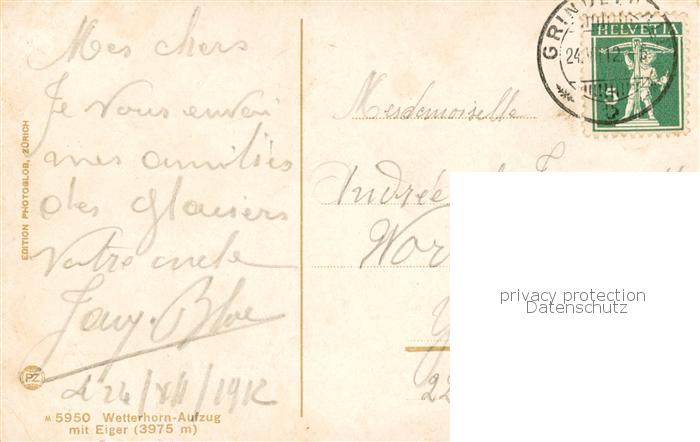 Mes chers
Je vous envoi
mes amitiés
des glasiers
Votre oncle
le 24/VII/1912
EDITION PHOTOGLOB, ZÜRICH
PZ
M 5950 Wetterhorn-Aufzug
mit Eiger (3975 m)
HELVETIA
5
Mesdemoiselle
Andrée
privacy protection
Datenschutz